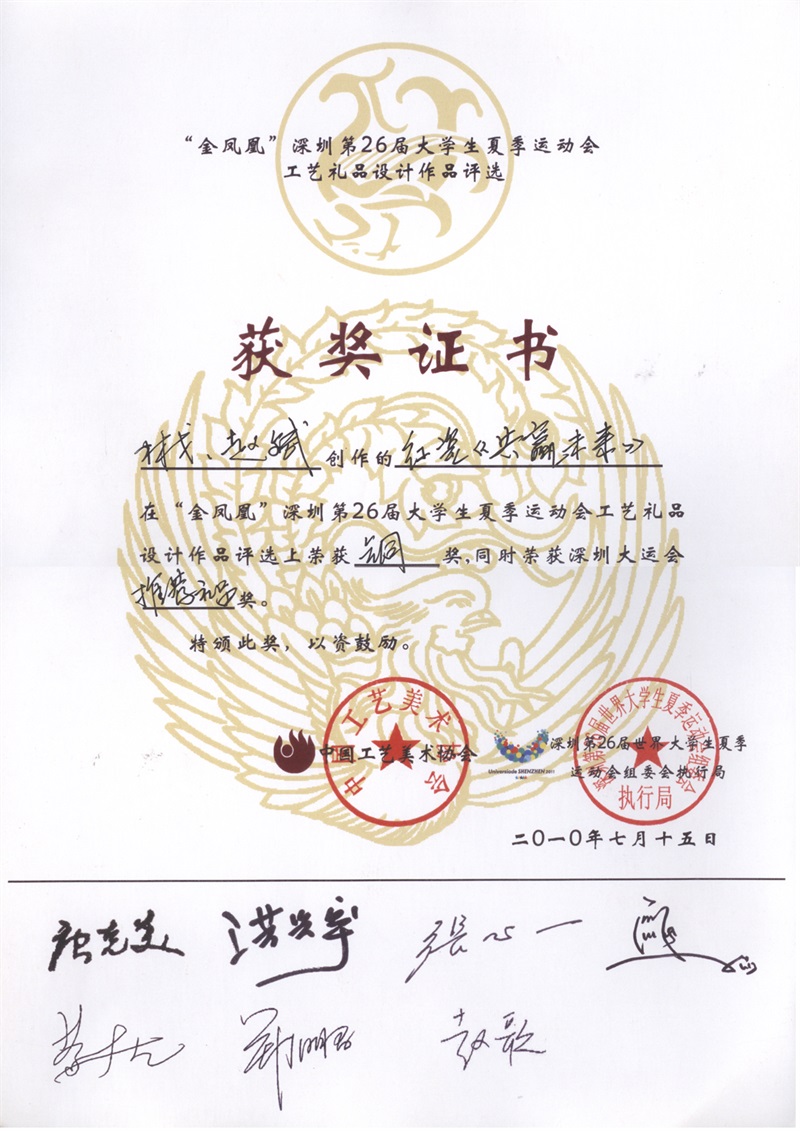 “金凤凰”深圳第26届大学生夏季运动会
工艺礼品设计作品评选
获奖证书
创作的 红瓷《共赢未来》
在“金凤凰”深圳第26届大学生夏季运动会工艺礼品
设计作品评选上荣获 铜 奖,同时荣获深圳大运会
推荐礼品奖。
特颁此奖，以资鼓励。
中国工艺美术协会
中國工艺美术协会
Universiade SHENZHEN 2011
深圳第26届世界大学生夏季运动会组委会
深圳第26届世界大学生夏季
运动会组委会执行局
执行局
二〇一〇年七月十五日
唐克美 張心一